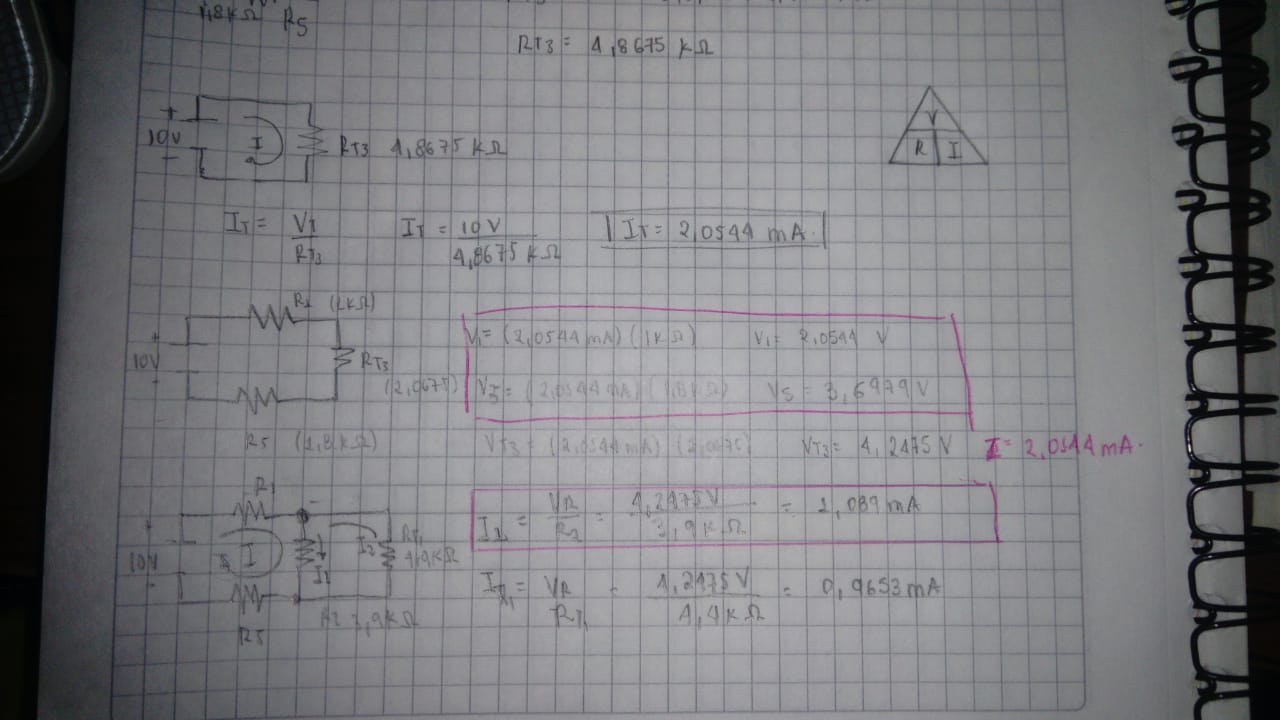 1,8kΩ R5
RT3 = 4,8675 kΩ
+
10V
-
I
RT3 4,8675 kΩ
V
R I
IT = VT / RT3 IT = 10 V / 4,8675 kΩ IT = 2,0544 mA.
R1 (1kΩ)
+
10V
-
RT3
(2,0675)
R5 (1,8kΩ)
V1 = (2,0544 mA) (1kΩ) V1 = 2,0544 V
V5 = (2,0544 mA) (1,8kΩ) V5 = 3,6979 V
VT3 = (2,0544 mA) (2,0675) VT3 = 4,2475 V I = 2,0544 mA.
R1
+
10V
-
I
I1
I2
RT1
4,4kΩ
R2 3,9kΩ
R5
= VR / R2 = 4,2475V / 3,9kΩ = 1,089 mA
= VR / RT1 = 4,2475 V / 4,4kΩ = 0,9653 mA